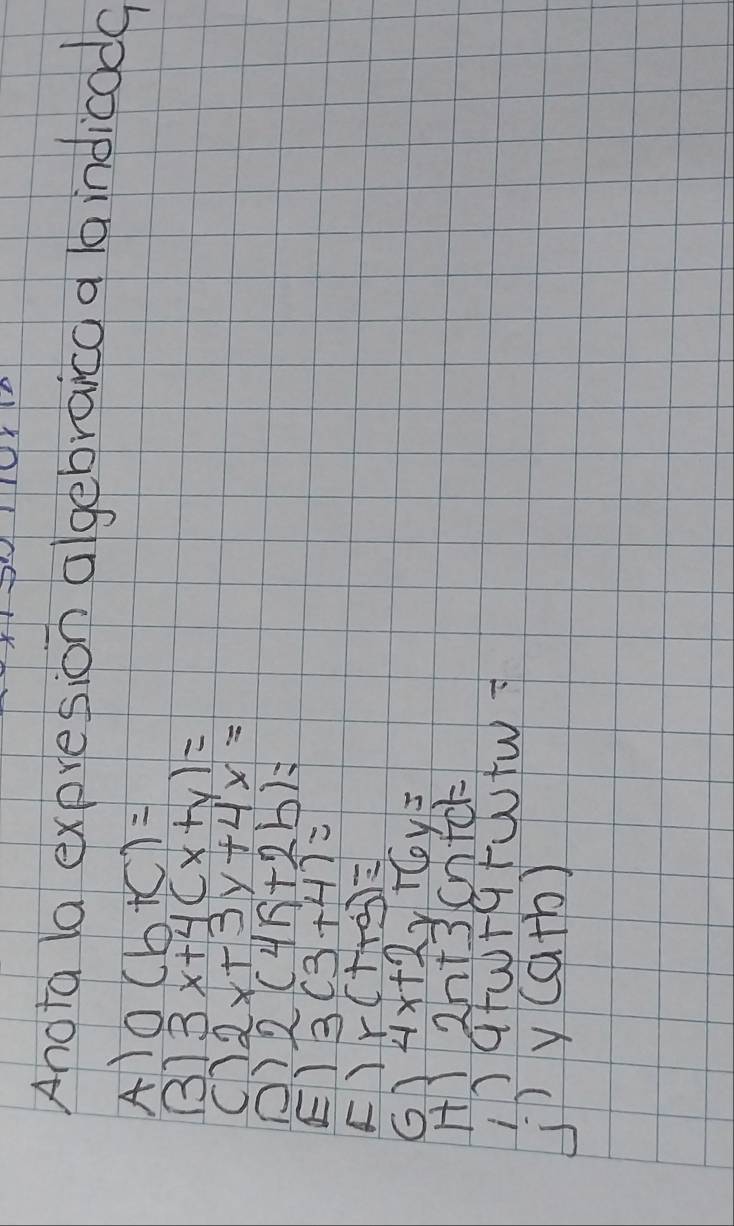 Anota la expresión algebraica a la indicada
A) a(b+c)=
B) 3x+4(x+y)=
C) 2x+3y+4x=
D) 2(4n+2b)=
E) 3(3+4)=
F) r(t+s)=
G) 4x+2y+6y=
H) 2n+3(n+c)=
i) q+w+q+w+w=
j) y(a+b)